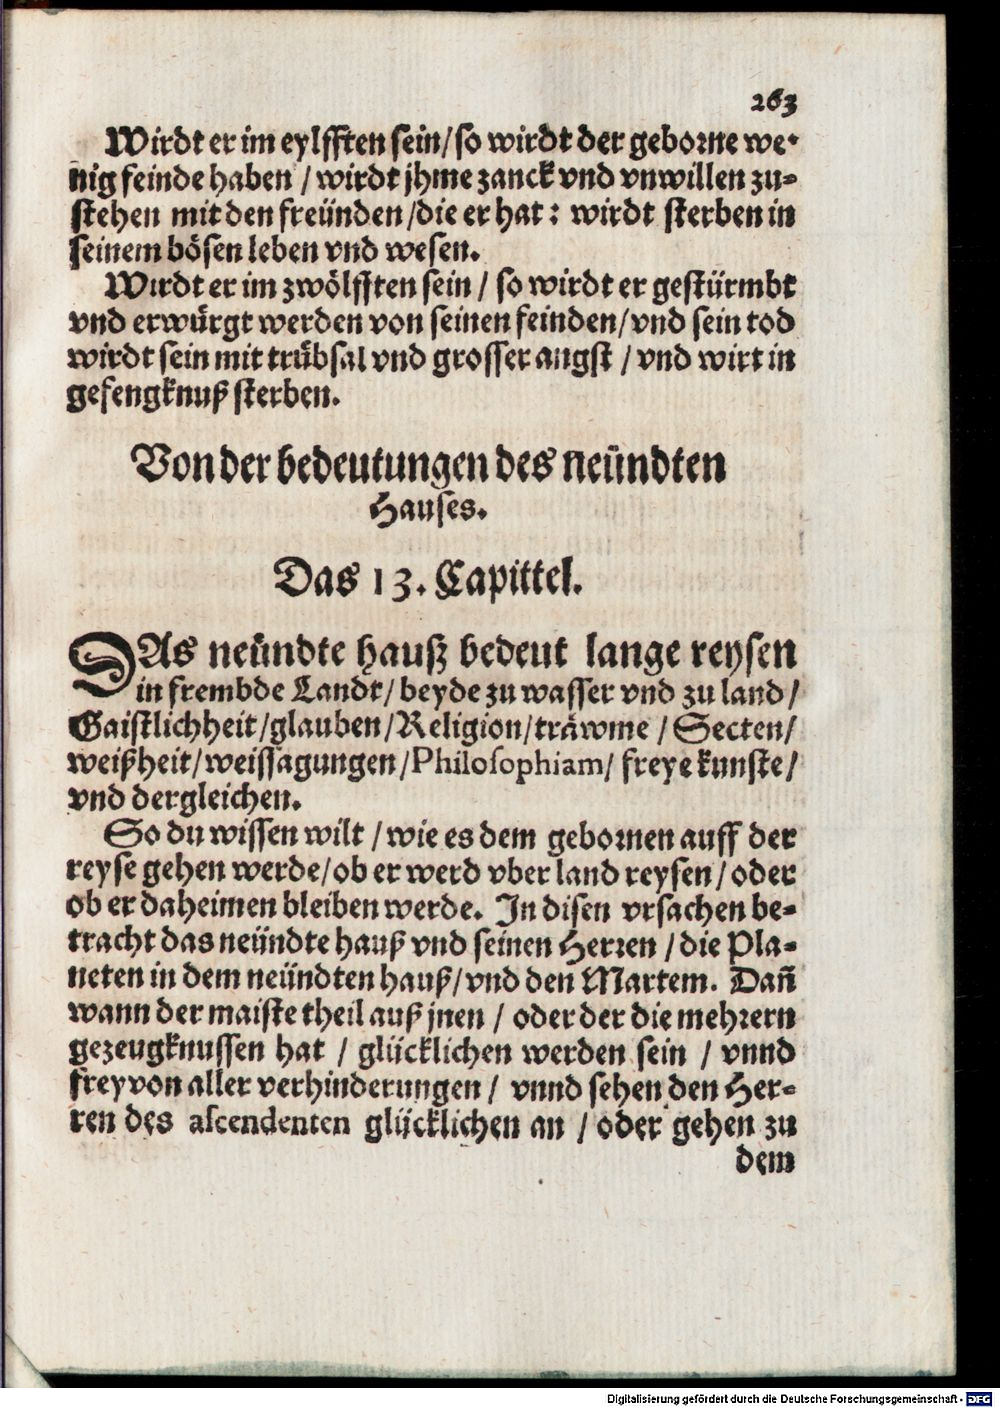 263
Wirdt er im eylfften sein/so wirdt der geborne we-
nig feinde haben / wirdt jhme zanck vnd vnwillen zu-
stehen mit den freünden/die er hat: wirdt sterben in
seinem bösen leben vnd wesen.
Wirdt er im zwölfften sein / so wirdt er gestürmbt
vnd erwürgt werden von seinen feinden/vnd sein tod
wirdt sein mit trübsal vnd grosser angst / vnd wirt in
gefengknuß sterben.
Von der bedeutungen des neündten
Hauses.
Das 13. Capittel.
DAs neündte hauß bedeut lange reysen
in frembde Landt/beyde zu wasser vnd zu land/
Gaistlichheit/glauben/Religion/träwme / Secten/
weißheit/weissagungen/Philosophiam/ freye kunste/
vnd dergleichen.
So du wissen wilt / wie es dem gebornen auff der
reyse gehen werde/ob er werd vber land reysen/oder
ob er daheimen bleiben werde. In disen vrsachen be-
tracht das neündte hauß vnd seinen Herren / die Pla-
neten in dem neündten hauß/vnd den Martem. Dañ
wann der maiste theil auß jnen / oder der die mehrern
gezeugknussen hat / glücklichen werden sein / vnnd
frey von aller verhinderungen / vnnd sehen den Her-
ren des ascendenten glücklichen an / oder gehen zu
dem
Digitalisierung gefördert durch die Deutsche Forschungsgemeinschaft - DFG